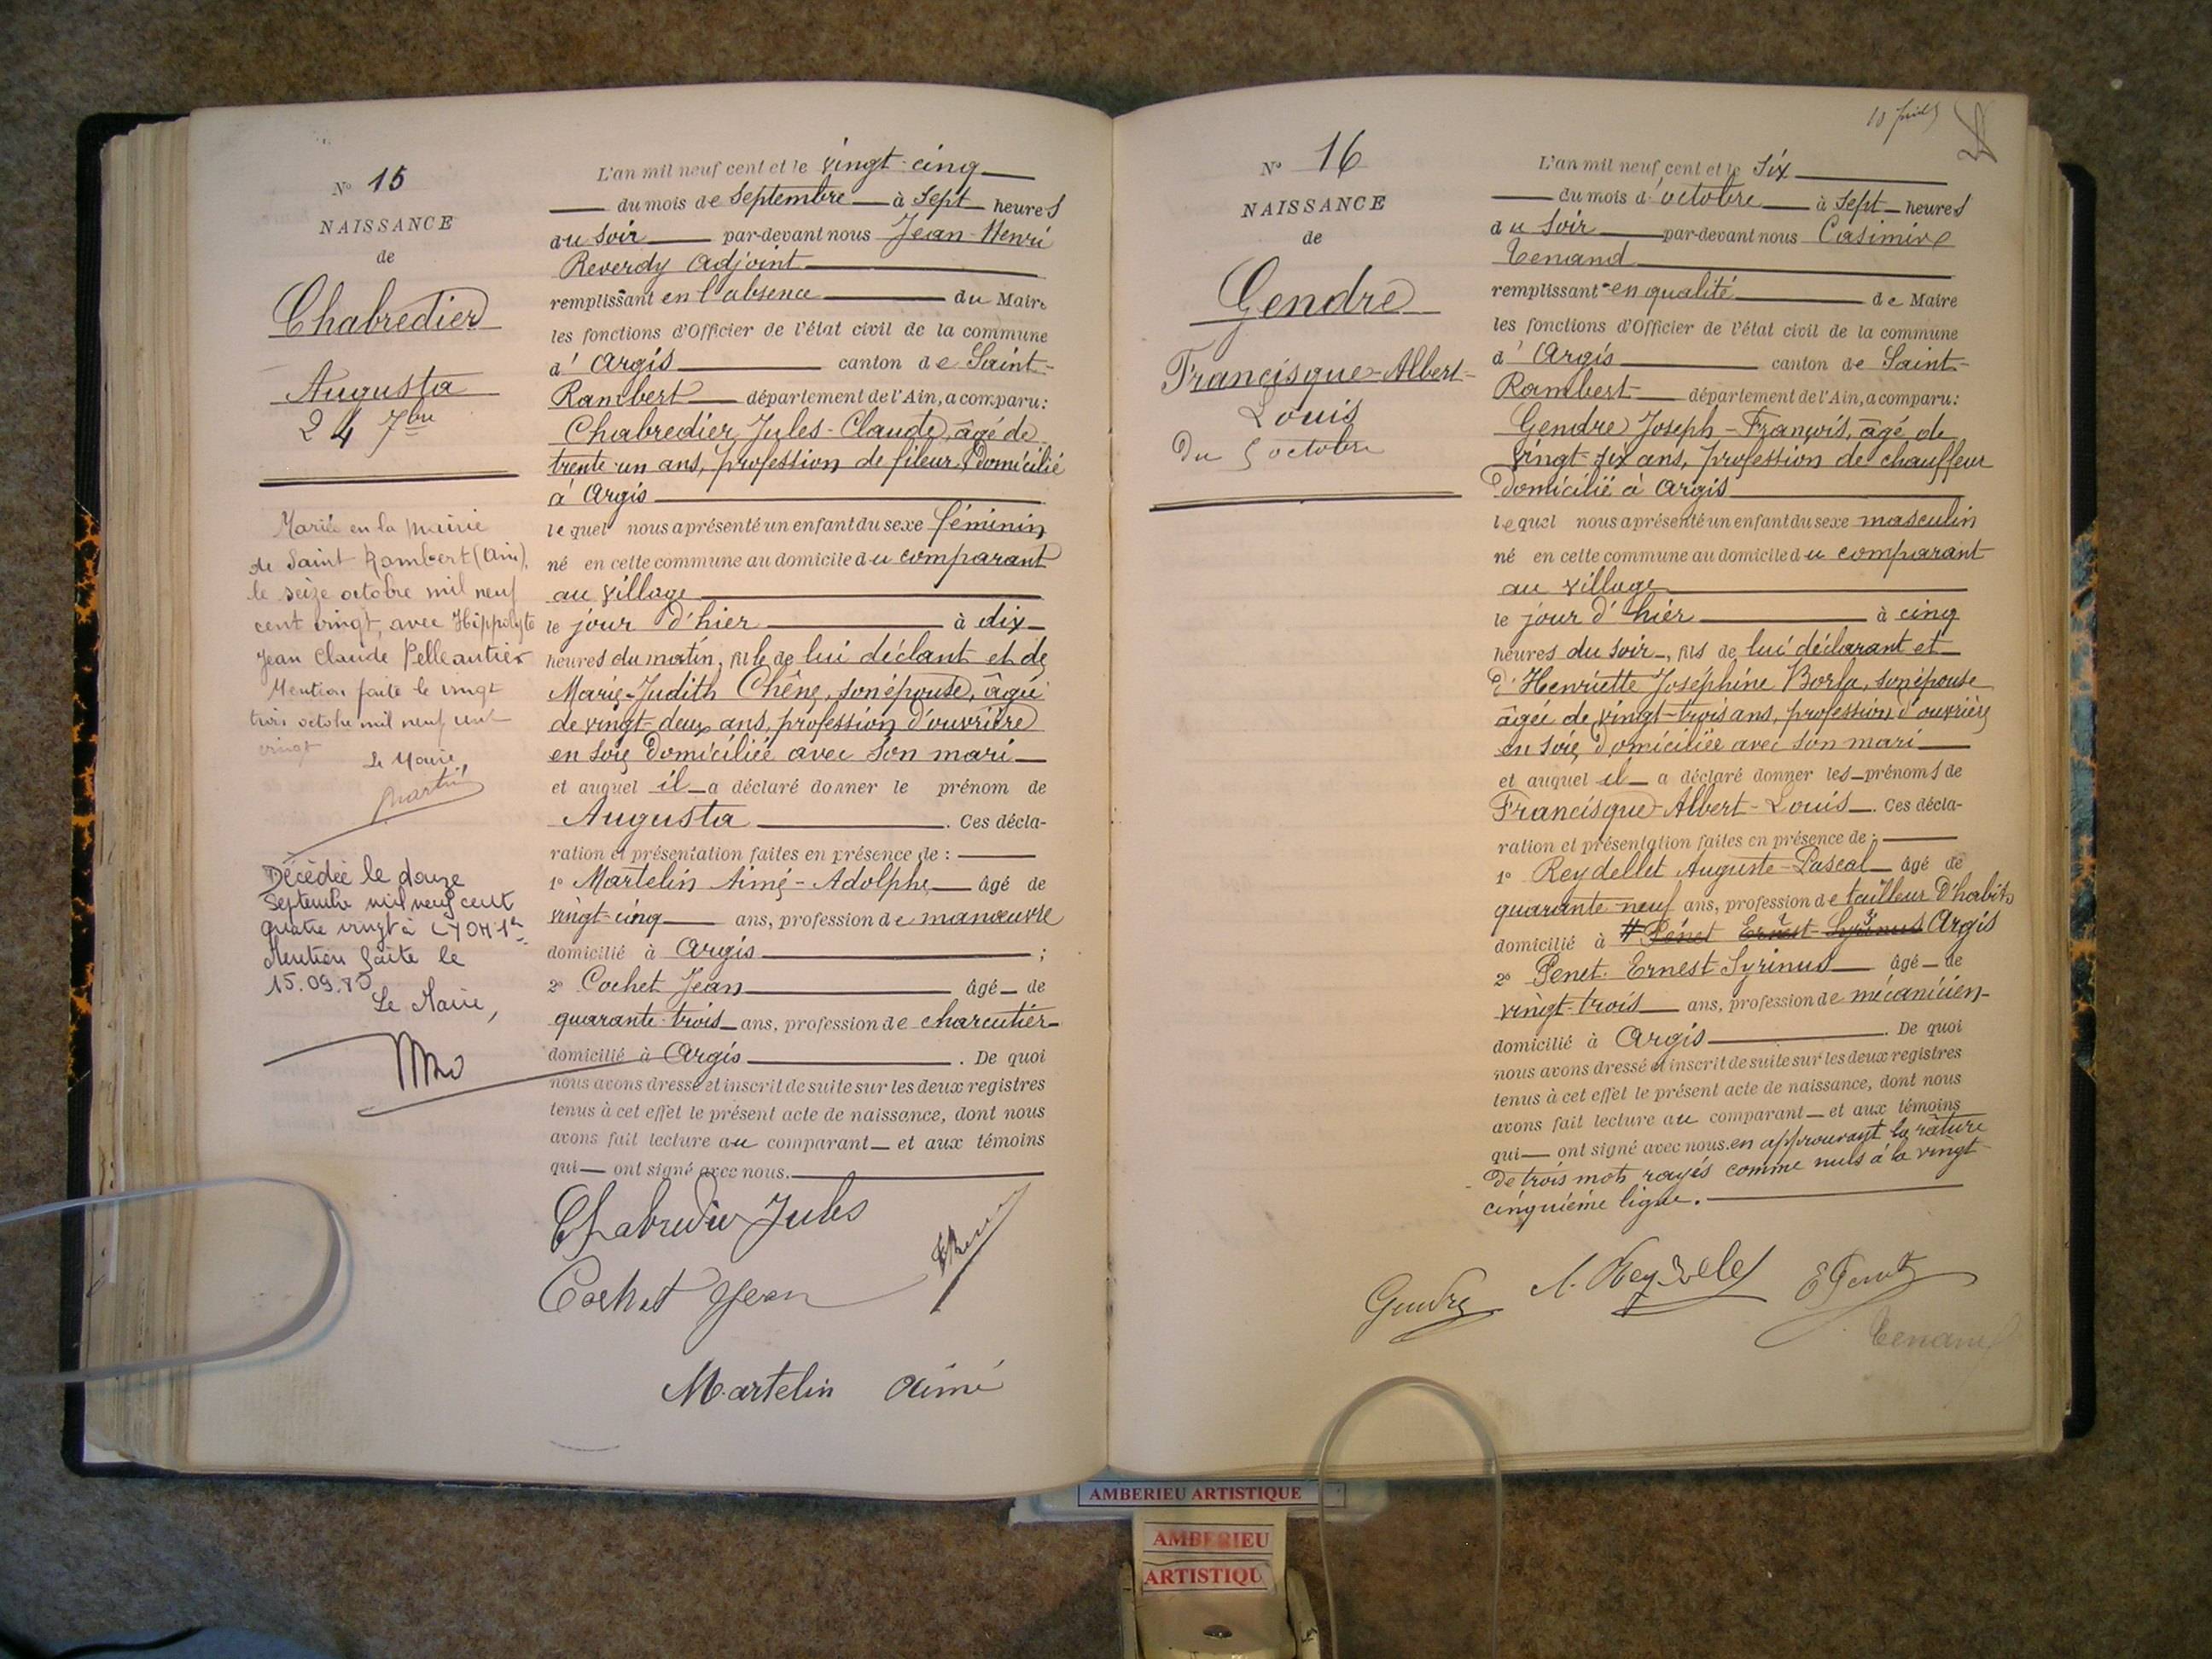 N° 15
NAISSANCE
de
Chabredier
Augusta
24 7bre
Mariée en la mairie
de Saint Rambert (Ain),
le seize octobre mil neuf
cent vingt, avec Hippolyte
Jean Claude Pelleautier
Mention faite le vingt
trois octobre mil neuf cent
vingt
Le Maire,
Martin
Décédée le douze
Septembre mil neuf cent
quatre vingt à LYON 1er
Mention faite le
15.09.80
Le Maire,
L'an mil neuf cent et le vingt-cinq
du mois de Septembre à Sept heures
du soir par-devant nous Jean-Henri
Reverdy Adjoint
remplissant en l'absence du Maire
les fonctions d'Officier de l'état civil de la commune
d'Argis canton de Saint-
Rambert département de l'Ain, a comparu:
Chabredier Jules-Claude, âgé de
trente-un ans, profession de fileur, domicilié
à Argis
lequel nous a présenté un enfant du sexe féminin
né en cette commune au domicile du comparant
au village
le jour d'hier à dix
heures du matin, fille de lui déclant et de
Marie-Judith Chêne, son épouse, âgée
de vingt-deux ans, profession d'ouvrière
en soie, domiciliée avec son mari
et auquel il a déclaré donner le prénom de
Augusta. Ces décla-
ration et présentation faites en présence de :
1° Martelin Aimé-Adolphe âgé de
vingt-cinq ans, profession de manœuvre
domicilié à Argis ;
2° Cochet Jean âgé de
quarante-trois ans, profession de charcutier
domicilié à Argis. De quoi
nous avons dressé et inscrit de suite sur les deux registres
tenus à cet effet le présent acte de naissance, dont nous
avons fait lecture au comparant et aux témoins
qui ont signé avec nous.
Chabredier Jules
Cochet Jean
Martelin Aimé
N° 16
NAISSANCE
de
Gendre
Francisque-Albert-
Louis
Du 5 octobre
L'an mil neuf cent et le Six
du mois d'octobre à Sept heures
du soir par-devant nous Casimir
Tenand
remplissant en qualité de Maire
les fonctions d'Officier de l'état civil de la commune
d'Argis canton de Saint-
Rambert département de l'Ain, a comparu:
Gendre Joseph-François, âgé de
vingt-six ans, profession de chauffeur
domicilié à Argis
lequel nous a présenté un enfant du sexe masculin
né en cette commune au domicile du comparant
au village
le jour d'hier à cinq
heures du soir, fils de lui déclarant et
d'Henriette Joséphine Borla, son épouse
âgée de vingt-trois ans, profession d'ouvrière
en soie, domiciliée avec son mari
et auquel il a déclaré donner les prénoms de
Francisque-Albert-Louis. Ces décla-
ration et présentation faites en présence de :
1° Reydellet Auguste-Pascal âgé de
quarante-neuf ans, profession de tailleur d'habits
domicilié à # Penet Ernest Syrinus Argis
2° Penet Ernest Syrinus âgé de
vingt-trois ans, profession de mécanicien
domicilié à Argis. De quoi
nous avons dressé et inscrit de suite sur les deux registres
tenus à cet effet le présent acte de naissance, dont nous
avons fait lecture au comparant et aux témoins
qui ont signé avec nous. en approuvant la rature
de trois mots rayés comme nuls à la vingt
cinquième ligne.
Gendre A. Reydelet E Penet
Tenand
AMBERIEU ARTISTIQUE
AMBERIEU
ARTISTIQU